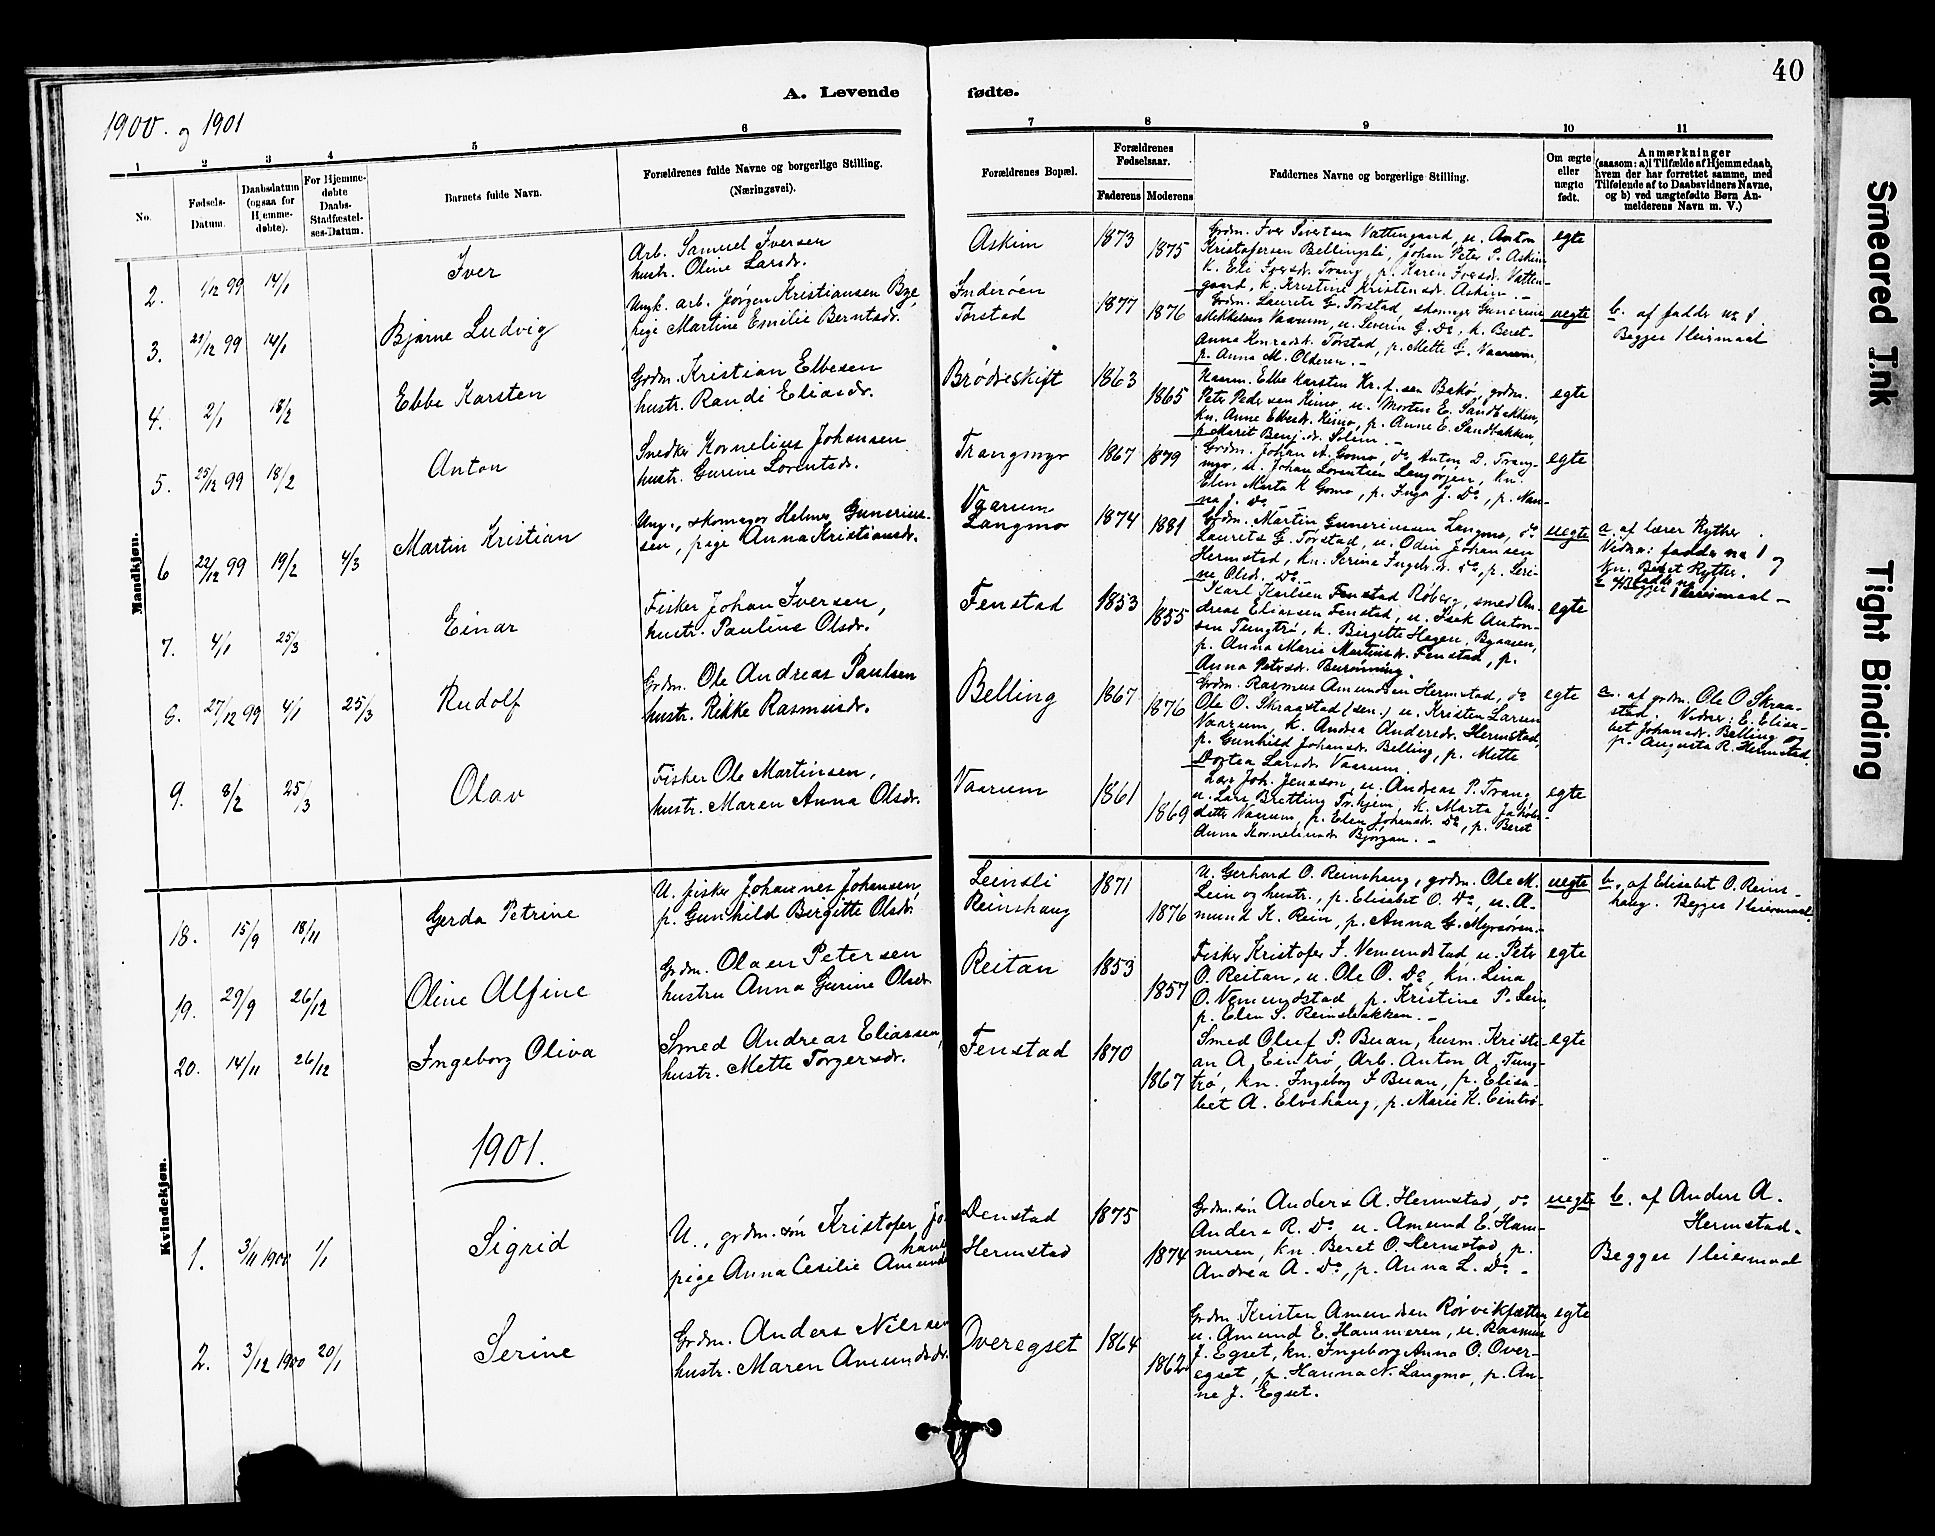 40
A. Levende fødte.
1900 og 1901
1 2 3 4 5 6 7 8 9 10 11
No.
Fødsels-Datum.
Daabsdatum (ogsaa for Hjemmedøbte).
For Hjemmedøbte Daabs-Stadfæstelses-Datum.
Barnets fulde Navn.
Forældrenes fulde Navne og borgerlige Stilling. (Næringsvei).
Forældrenes Bopæl.
Forældrenes Fødselsaar.
Faderens Moderens
Faddernes Navne og borgerlige Stilling.
Om ægte eller uægte født.
Anmærkninger
(saasom: a) i Tilfælde af Hjemmedaab, hvem der har forrettet samme, med Tilføiende af to Daabsvidners Navne, og b) ved uægtefødte Børn Anmelderens Navn m. V.)
Mandkjøn.
2. 1/12 99 14/1 Iver
Arb. Samuel Iversen
hustr. Oline Larsdr.
Askim 1873 1875
Grdm. Iver Sivertsen Vattengaard, u. Anton
Kristofersen Bellingsli, Johan Peter P. Askim
k. Eli Iversdr. Trang, p. Karen Iversdr. Vatten-
gaard, k. Kristine Kristensdr. Askim. -
egte
3. 21/12 99 14/1 Bjarne Ludvig
Ungk. arb. Jørgen Kristiansen Bye,
pige Martine Emilie Berntsdr.
Inderøen
Torstad 1877 1876
Grdm. Laurits G. Torstad, skomager Gunerius
Mikkelsen Vaarum, u. Severin G. Do, k. Beret-
Anna Konradsdr. Torstad, p. Mette G. Vaarum,
p. Anna M. Olderen. -
uegte
b. af fadder no 1
Begges 1 leiermaal
4. 2/1 18/2 Ebbe Karsten
Grdm. Kristian Ebbesen
hustr. Randi Eliasdr.
Brødreskift 1863 1865
Kaarm. Ebbe Karsten Kr. f. sen Bakø, grdm.
Peter Pedersen Kimo, u. Morten E. Sandbakken,
kn. Anne Ebbesdr. Kimo, p. Anne E. Sandbakken,
p. Marit Benj. dr. Solem. -
egte
5. 25/12 99 18/2 Anton
Snedker Kornelius Johansen
hustr. Gurine Lorentsdr.
Trangmyr 1867 1879
Grdm. Johan A. Gomo, do Anton D. Trang-
myr, u. Johan Lorentsen Langørjen, kn.
Elen Marta K Gomo, p. Inga J. Do, p. Nan-
na J. Do -
egte
6 22/12 99 19/2 4/3 Martin Kristian
Ung., skomager Helmer Gunerius-
sen, pige Anna Kristiansdr.
Vaarum
Langmo 1874 1881
Grdm. Martin Guneriussen Langmo, do
Laurits G. Torstad, u. Odin Johansen
Hermstad, kn. Serina Ingebr. dr. Do, p. Seri-
ne Olsdr. Do -
uegte
a. af lærer Rytter.
Vidner: fadder no 1 og
kn. Beret Rytter.
Begges 1 leiermaal -
7. 4/1 25/3 Einar
Fisker Johan Iversen,
hustr. Pauline Olsdr.
Fenstad 1853 1855
Karl Karlsen Fenstad Røberg, smed An-
dreas Eliassen Fenstad, u. Isak Anton-
sen Tungtrø, k. Birgitte Hagen Byaasen,
p. Anna Marie Martinsdr. Fenstad, p.
Anna Petersdr. Burønning.
egte
8. 27/12 99 4/1 25/3 Rudolf
Grdm. Ole Andreas Paulsen
hustr. Rikke Rasmusdr.
Belling 1867 1876
Grdm. Rasmus Amundsen Hermstad, do
Ole O. Skraastad (sen.) u. Kristen Larsen
Vaarum, k. Andrea Andersdr. Hermstad,
p. Gunhild Johansdr. Belling, p. Mette
Dortea Larsdr. Vaarum.
egte
a. af grdm. Ole O Skraa-
stad. Vidner: E. Elisa-
bet Johansdr. Belling og
p. Augusta R. Hermstad.
9. 8/2 25/3 Olav
Fisker Ole Martinsen,
hustr. Maren Anna Olsdr.
Vaarum 1861 1869
Lars Joh. Jenssen, u. Andreas P. Trang,
u. Lars Bretting Tr.hjem, k. Marta Jakobs-
datter Vaarum, p. Elen Johansdr. Do, p. Beret
Anna Korneliusdr. Bjørgan. -
egte
Kvindekjøn.
18. 15/9 18/11 Gerda Petrine
U. fisker Johannes Johansen,
p. Gunhild Birgitte Olsdr.
Leinsli
Reinshaug 1871 1876
U. Gerhard O. Reinshaug, grdm. Ole M.
Lein og hustr., p. Elisabet O. Do, u. A-
mund K. Rein, p. Anna G. Myrsøren.-
uegte
b. af Elisabet O. Reins-
haug. Begges 1 leiermaal.
19. 29/9 26/12 Oline Alfine
Grdm. Olaen Petersen
hustru Anna Gurine Olsdr.
Reitan 1853 1857
Fisker Kristofer S. Nemundstad, u. Peter
O. Reitan, u. Ole O. Do, kn. Lina
O. Nemundstad, p. Kristine P. Lein
p. Elen S. Reinsbakken. -
egte
20. 14/11 26/12 Ingeborg Oliva
Smed Andreas Eliassen,
hustr. Mette Torgersdr.
Fenstad 1870 1867
Smed Oluf P. Buan, husm. Kristi-
an A. Eintrø, Arb. Anton A. Tung-
trø, kn. Ingeborg S Buan, p. Elisa-
bet A. Elvehaug, p. Marie K. Eintrø-
egte
1901.
1. 3/11 1900 1/1 Sigrid
U., grdm. søn Kristofer Jo-
hans
pige Anna Cesilie Amunds
Denstad
Hermstad 1875 1874
Grdm. søn Anders A. Hermstad, do
Anders R. Do u. Amund E. Ham-
meren, kn. Beret O. Hermstad, p.
Andrea A. Do, p. Anna L. Do -
uegte
b. af Anders A.
Hermstad.
Begges 1 leiermaal
2. 3/12 1900 20/1 Serine
Grdm. Anders Nilssen
hustr. Maren Amundsdr.
Overegset 1864 1862
Grdm. Kristen Amundsen Rørvikfætten
u. Amund E. Hammeren, u. Rasmus
J. Egset, kn. Ingeborg Anna O. Over-
egset, p. Hanna N. Langmo, p. An-
ne J. Egset.
egte
Smeared Ink
Tight Binding